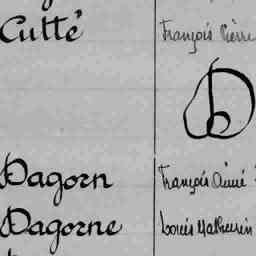 Cutté François Pierre
D
Dagorn François Aimé
Dagorne Louis Mathurin